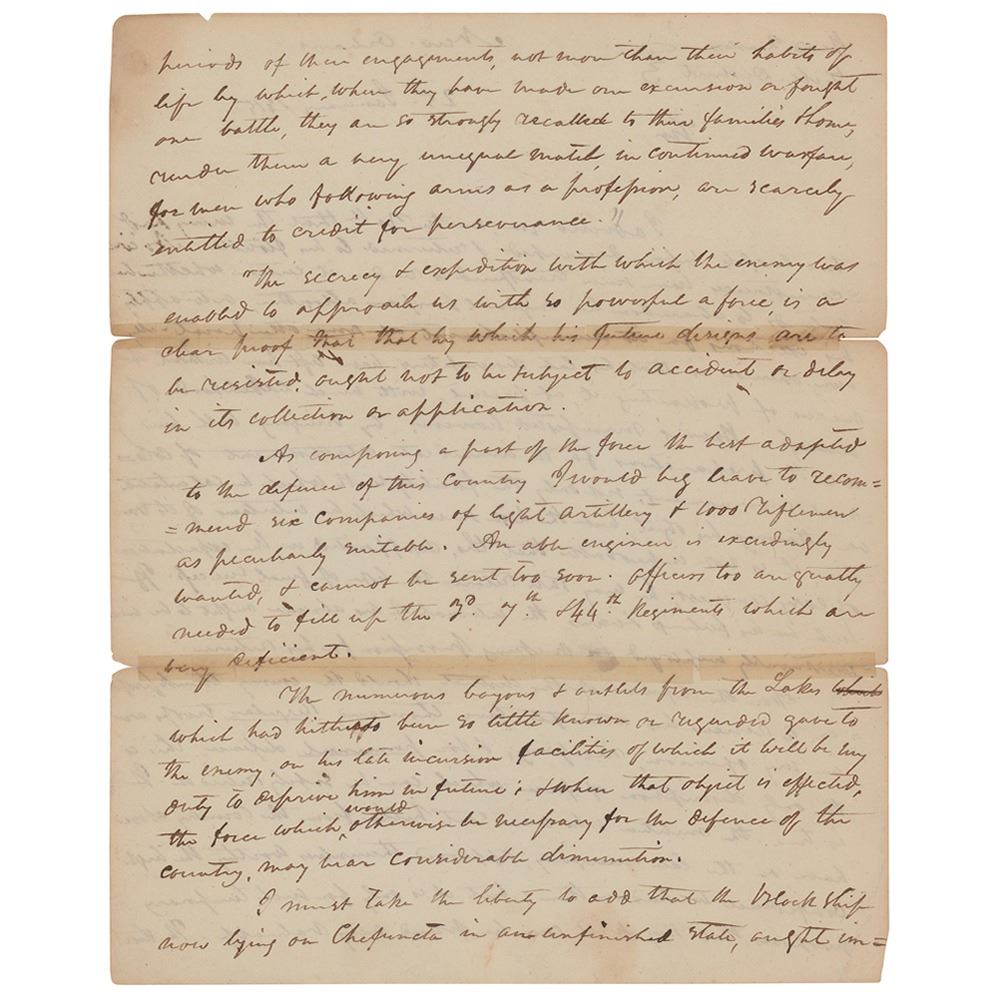 periods of their engagements, not more than their habits of
life by which, when they have made one excursion or fought
one battle, they are so strongly recalled to their families & home,
render them a very unequal match, in continued warfare,
for men who following arms as a profession, are scarcely
entitled to credit for perseverance."
The secrecy & expedition with which the enemy was
enabled to approach us with so powerful a force, is a
clear proof that that by which his future designs are to
be resisted, ought not to be subject to accident or delay
in its collection or application.
As composing a part of the force the best adapted
to the defence of this Country I would beg leave to recom=
=mend six Companies of light Artillery & 1000 Riflemen
as peculiarly suitable. An able engineer is exceedingly
wanted, & cannot be sent too soon. Officers too are greatly
needed to fill up the 3d. 7th & 44th Regiments which are
very deficient.
The numerous bayous & outlets from the Lakes which
which had hitherto been so little known or regarded gave to
the enemy, on his late incursion facilities of which it will be my
duty to deprive him in future; & when that object is effected,
the force which, would otherwise be necessary for the defence of the
country, may bear considerable diminution.
I must take the liberty to add that the block ship
now lying on Chefuncta in an unfinished state, ought im=